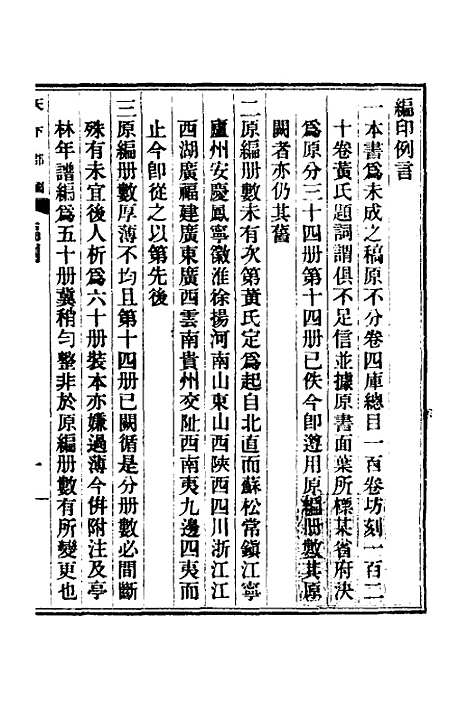 編印例言
一本書爲未成之稿原不分卷四庫總目一百卷坊刻一百二
十卷黃氏題詞謂俱不足信並據原書面葉所標某省府決
爲原分三十四册第十四册已佚今卽遵用原編册數其原
闕者亦仍其舊
二原編册數未有次第黃氏定爲起自北直而蘇松常鎭江寧
廬州安慶鳳寧徽淮徐揚河南山東山西陝西四川浙江江
西湖廣福建廣東廣西雲南貴州交阯西南夷九邊四夷而
止今卽從之以第先後
三原編册數厚薄不均且第十四册已闕循是分册數必間斷
殊有未宜後人析爲六十册裝本亦嫌過薄今倂附注及亭
林年譜編爲五十册冀稍勻整非於原編册數有所變更也
天下郡
一